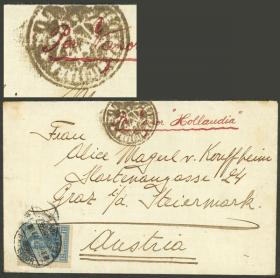 Par Vapor
Par Vapor "Hollandia"
Frau
Alice Magul v. Kouffheim
Hortinangasse 24
Graz i/a. Steiermark.
Austria